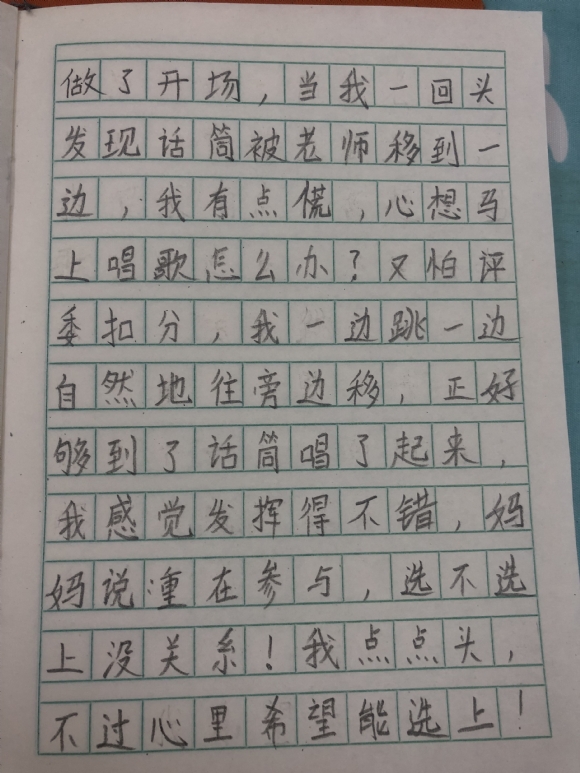 做了开场，当我一回头
发现话筒被老师移到一
边，我有点慌，心想马
上唱歌怎么办？又怕评
委扣分，我一边跳一边
自然地往旁边移，正好
够到了话筒唱了起来，
我感觉发挥得不错，妈
妈说湩在参与，选不选
上没关系！我点点头，
不过心里希望能选上！